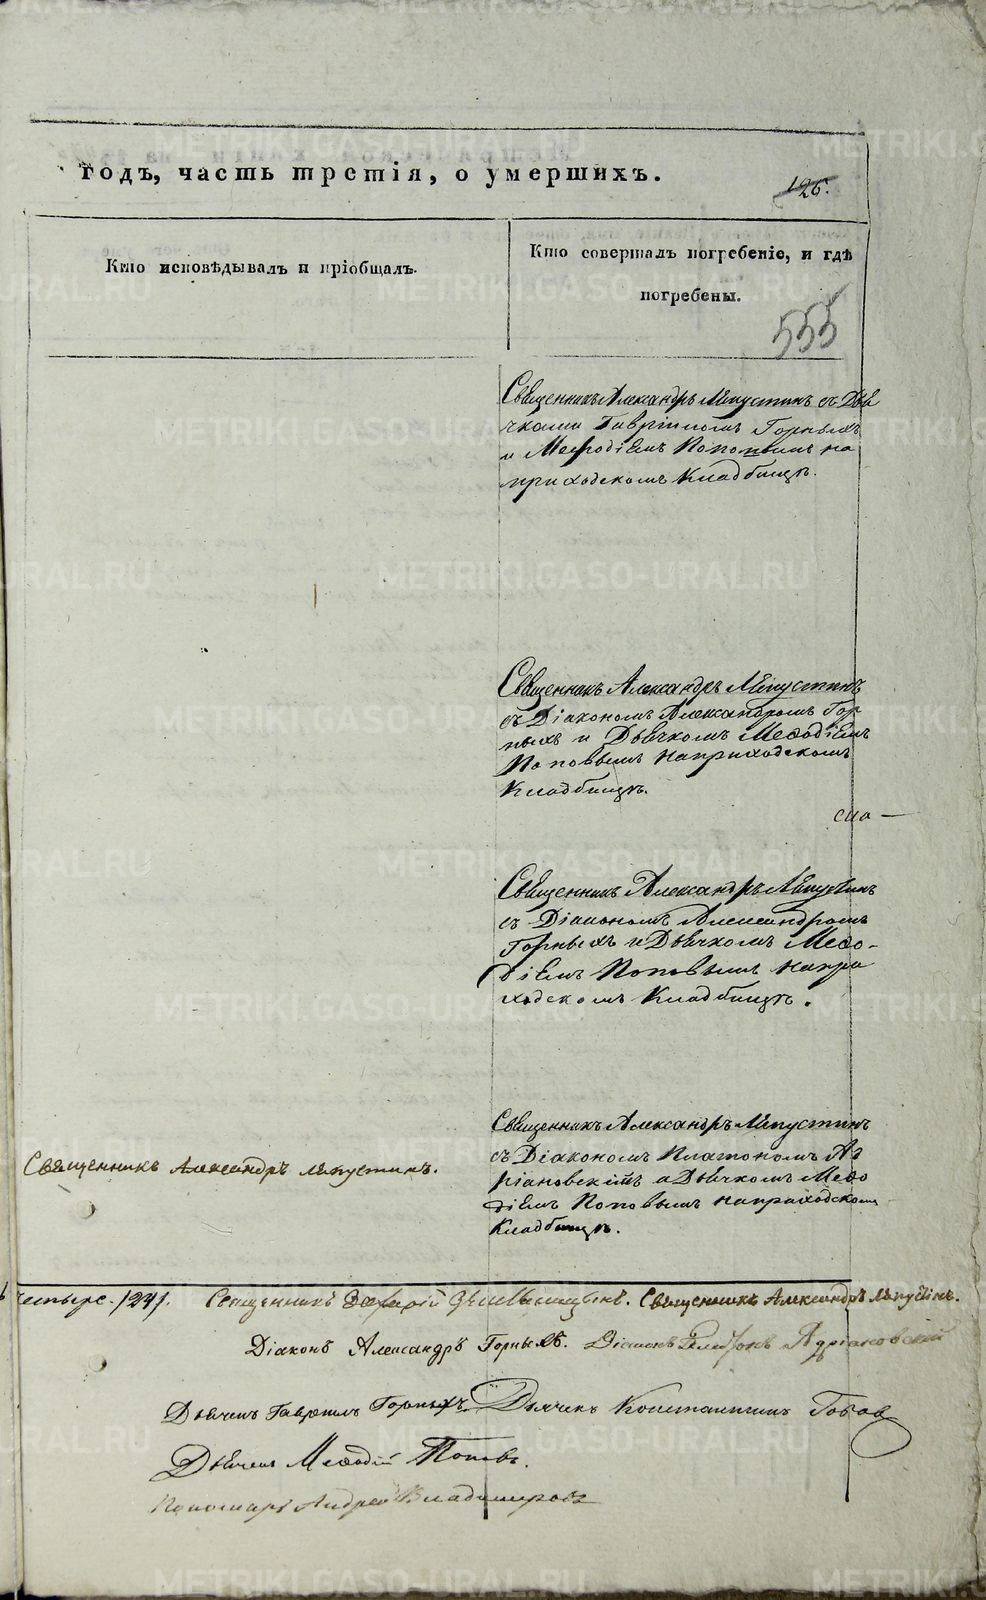 годъ, часть третія, о умершихъ.
126.
Кто исповѣдывалъ и пріобщалъ.
Кто совершалъ погребеніе, и гдѣ
погребены.
555
Священникъ Александръ Ляпустинъ съ Дья
чками Гавріиломъ Горныхъ
и Меѳодіемъ Поповымъ на
приходскомъ Кладбищѣ.
Священникъ Александръ Ляпустинъ
съ Діакономъ Александромъ Гор
ныхъ и Дьячкомъ Меѳодіемъ
Поповымъ на приходскомъ
Кладбищѣ.
Священникъ Александръ Ляпустинъ
съ Діакономъ Александромъ
Горныхъ и Дьячкомъ Меѳо-
діемъ Поповымъ на при
ходскомъ Кладбищѣ.
Священникъ Александръ Ляпустинъ
съ Діакономъ Платономъ Ад
ріановскимъ и Дьячкомъ Меѳо
діемъ Поповымъ на приходскомъ
Кладбищѣ.
Священникъ Александръ Ляпустинъ.
четыре. Священникъ Захарій Священникъ Александръ Ляпустинъ.
Діаконъ Александръ Горныхъ. Діаконъ Платонъ Адріановскій
Дьячекъ Гавріилъ Горныхъ. Дьячекъ Константинъ
Дьячекъ Меѳодій Поповъ.
Пономарь Андрей Владимировъ
METRIKI.GASO-URAL.RU